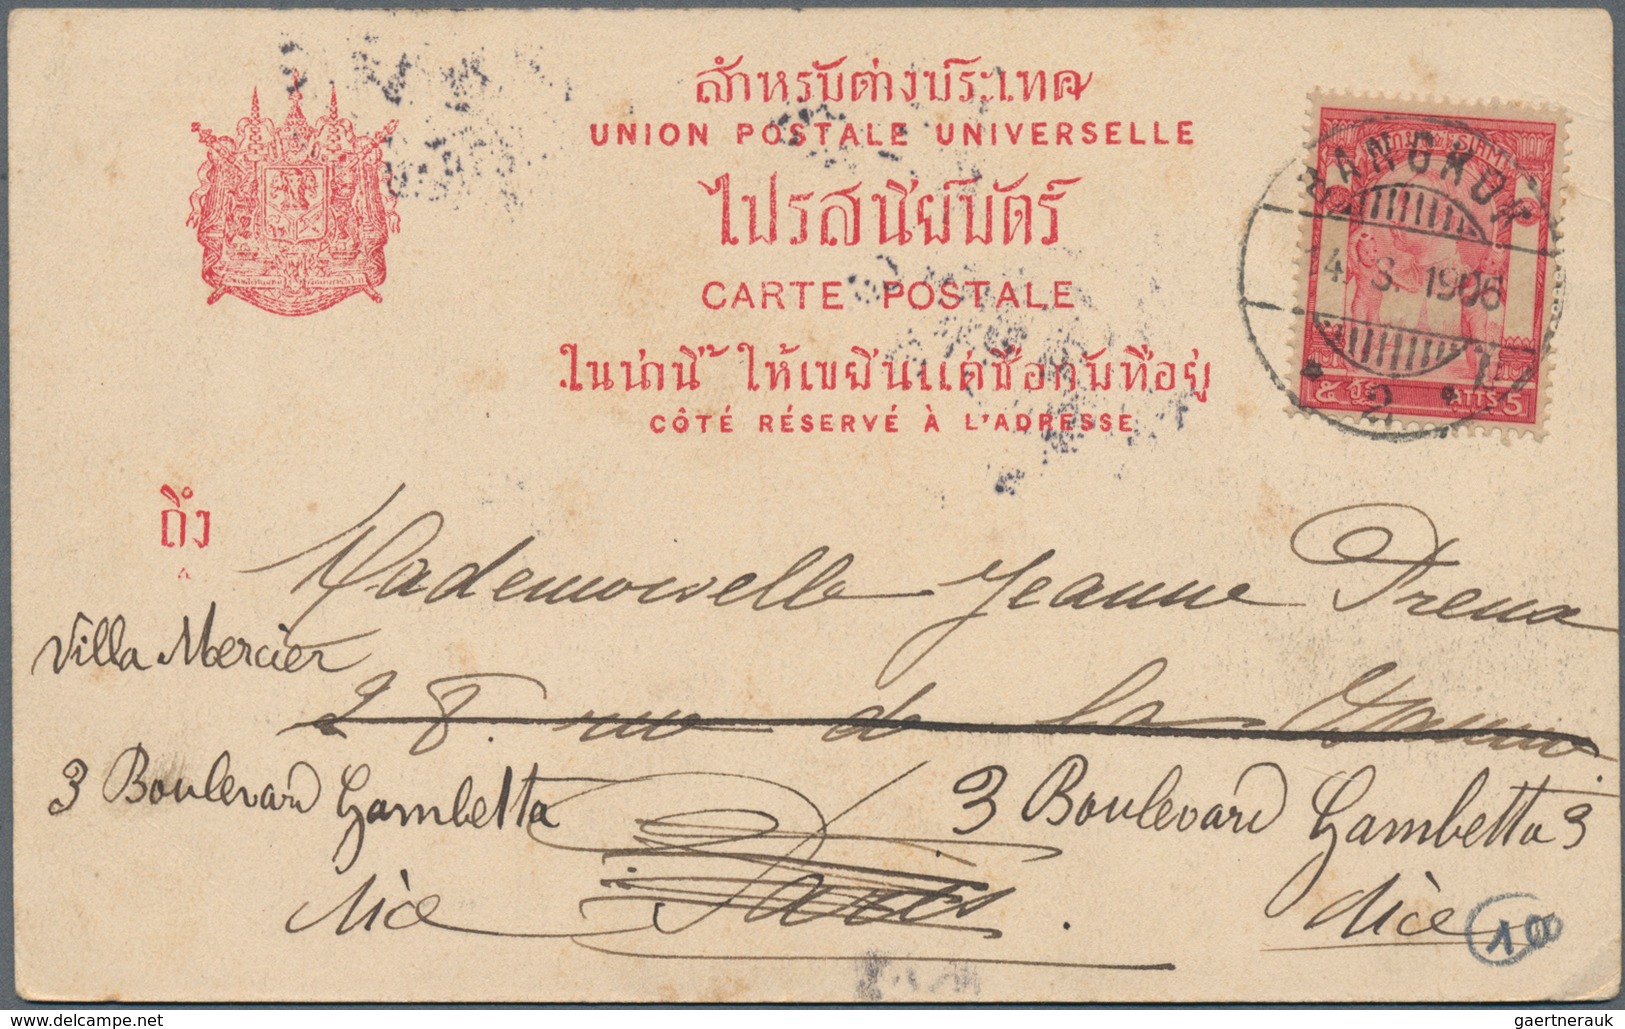 สำหรับต่างประเทศ
UNION POSTALE UNIVERSELLE
ไปรสนีย์บัตร์
CARTE POSTALE
ในน่านี้ ให้เขยีนแต่ชื่อกับที่อยู่
CÔTÉ RÉSERVÉ À L'ADRESSE
BANGKOK
4. 3. 1906
2
ATTS 5
ถึง
Mademoiselle Jeanne Dreux
Villa Mercier
28. rue de la
3 Boulevard Gambetta
3 Boulevard Gambetta 3
Nice
Paris.
Nice
100
www.delcampe.net
gaertnerauk